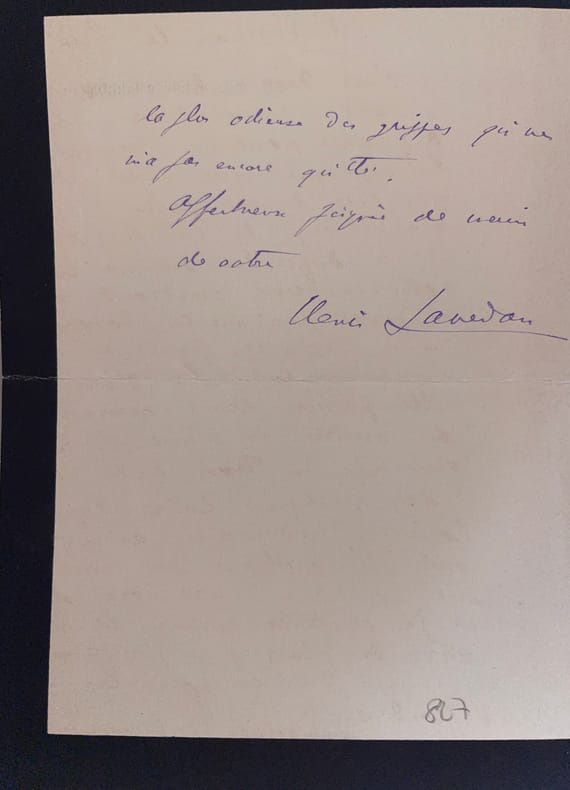 la plus odieuse des grippes qui ne
m'a pas encore quitté.
Affectueuse poignée de main
de votre
Henri Lavedan
827